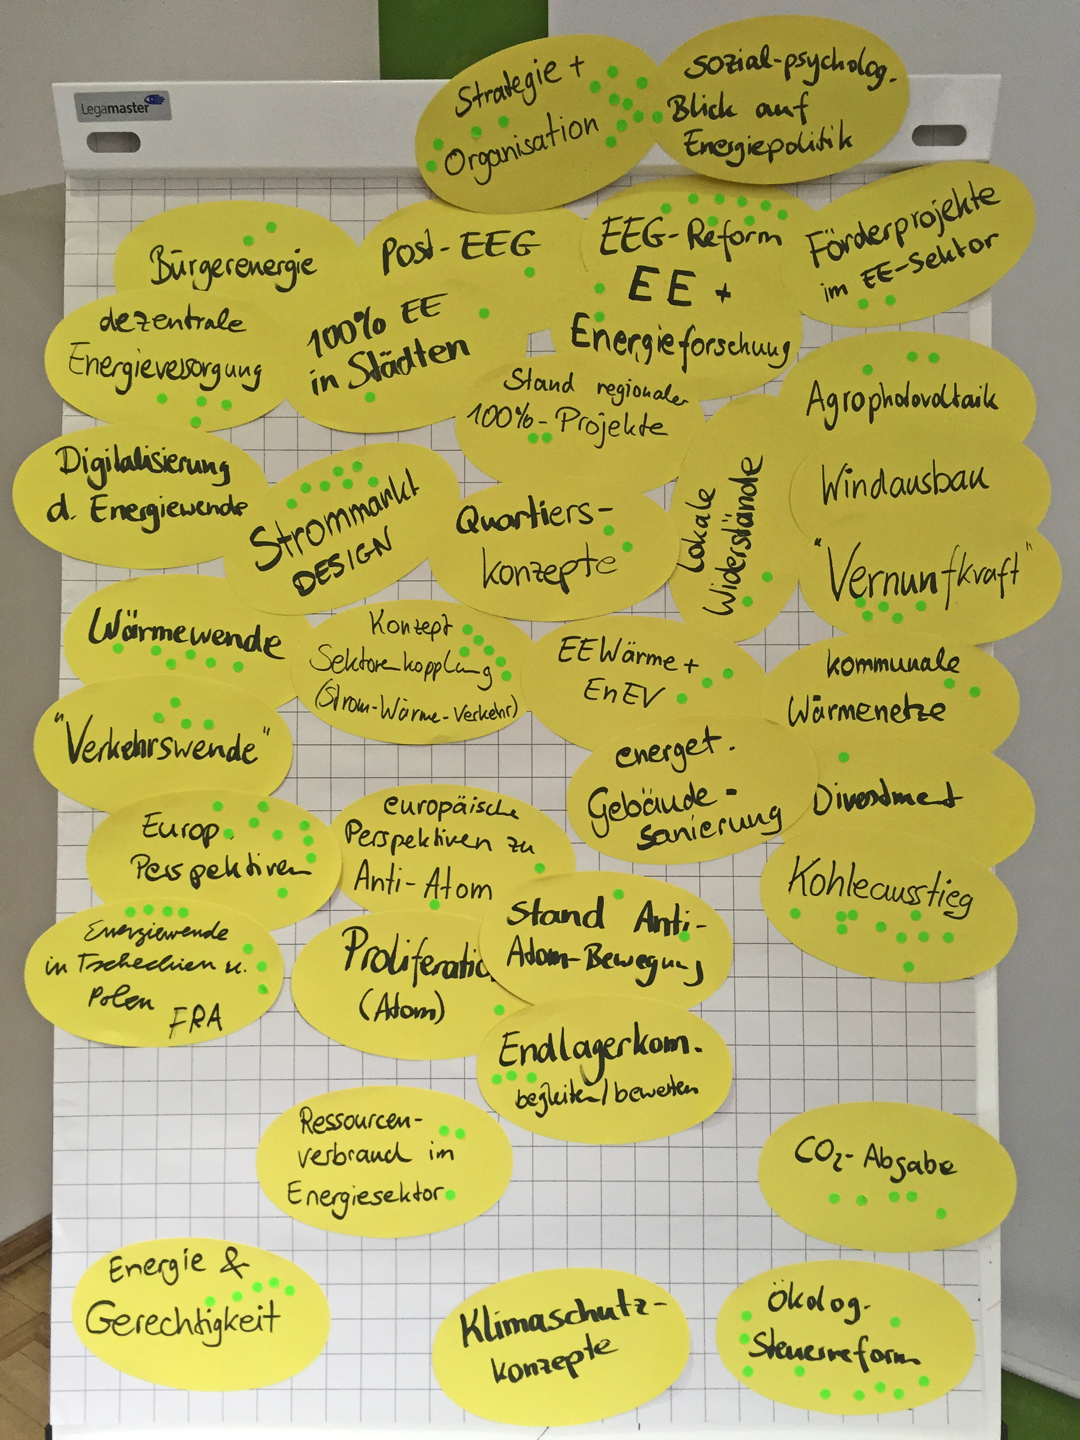 Legamaster
Strategie +
Organisation
sozial-psycholog.
Blick auf
Energiepolitik
Bürgerenergie
Post-EEG
EEG-Reform
EE +
Energieforschung
Förderprojekte
im EE-Sektor
dezentrale
Energieversorgung
100% EE
in Städten
Stand regionaler
100%-Projekte
Agrophotovoltaik
Digitalisierung
d. Energiewende
Strommarkt
DESIGN
Quartiers-
konzepte
Lokale
Widerstände
Windausbau
"Vernunftkraft"
Wärmewende
Konzept
Sektorenkopplung
(Strom-Wärme-Verkehr)
EE Wärme +
EnEV
kommunale
Wärmenetze
"Verkehrswende"
energet.
Gebäude-
sanierung
Divestment
Europ.
Perspektiven
europäische
Perspektiven zu
Anti-Atom
Kohleausstieg
Energiewende
in Tschechien u.
Polen
FRA
Proliferatio
(Atom)
Stand Anti-
Atom-Bewegung
Endlagerkom.
begleiten/bewerten
Ressourcen-
verbrauch im
Energiesektor
CO₂-Abgabe
Energie &
Gerechtigkeit
Klimaschutz-
konzepte
Ökolog.
Steuerreform